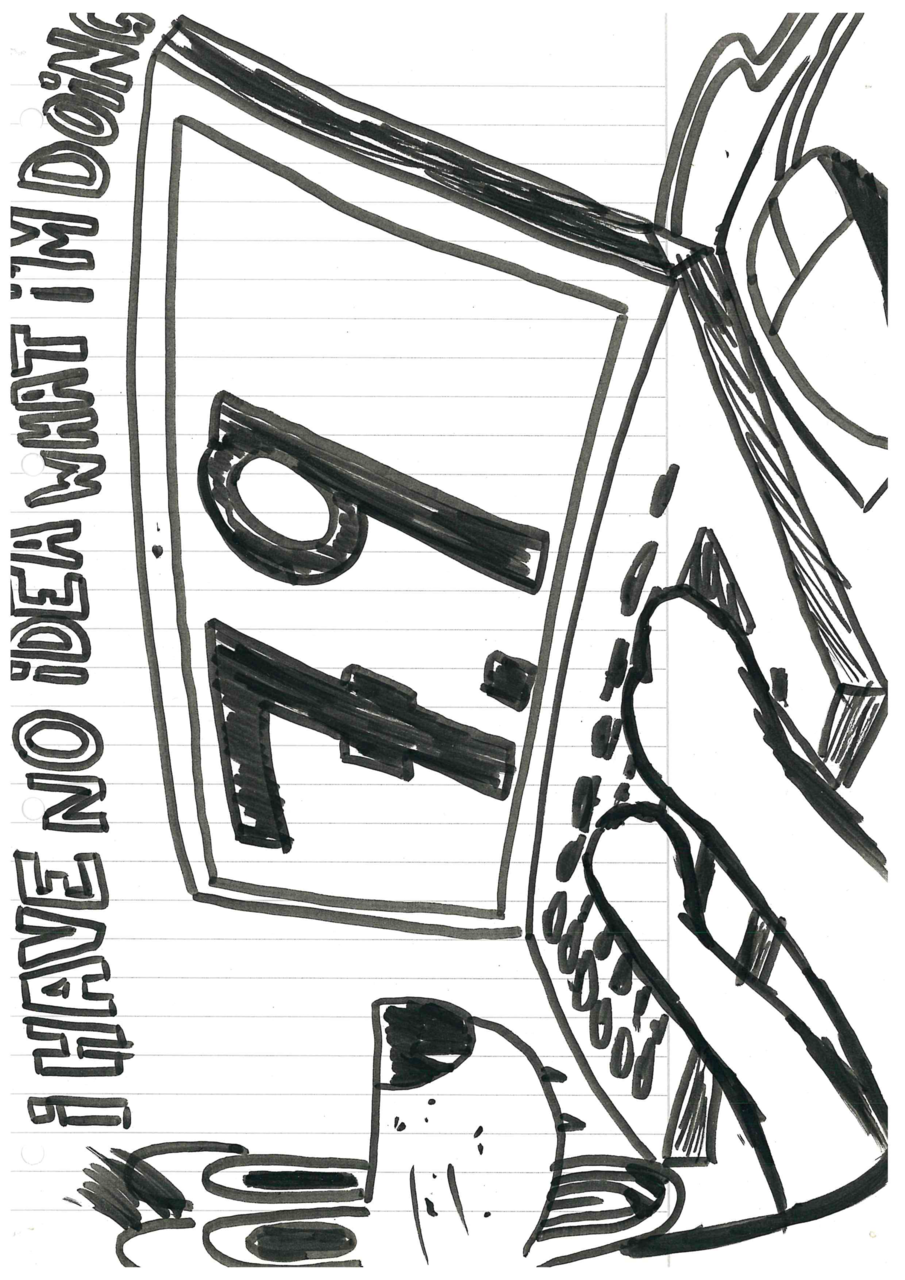 i HAVE NO iDEA WHAT i'M DOiNG
7.9